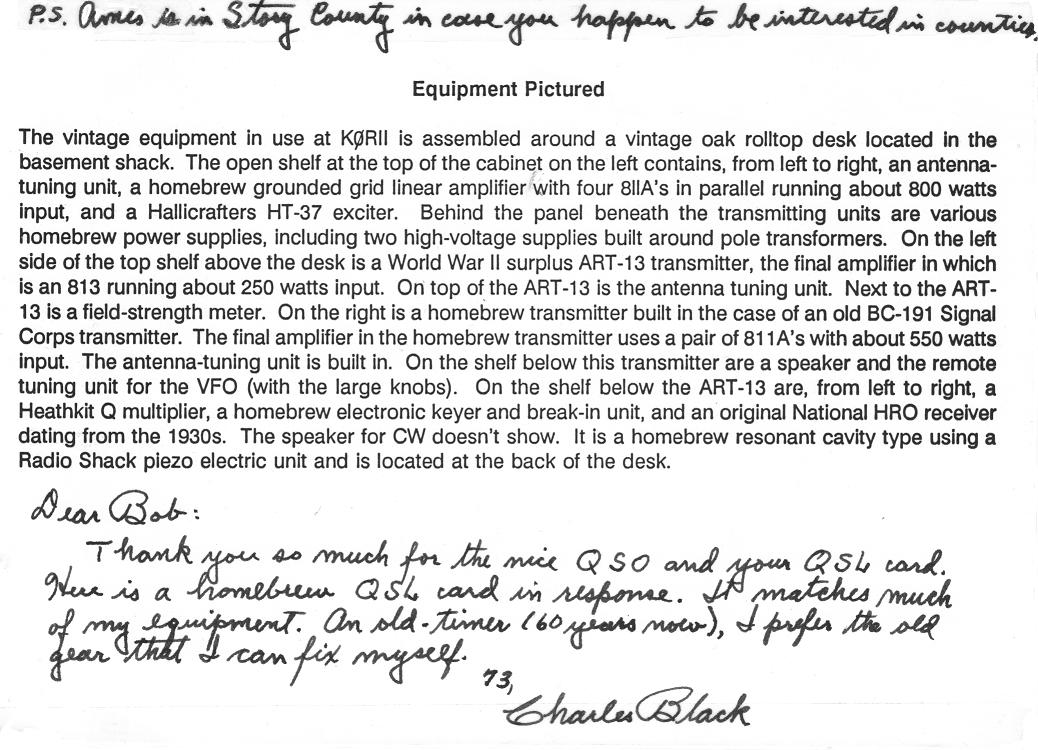 P.S. Ames is in Story County in case you happen to be interested in counties.
Equipment Pictured
The vintage equipment in use at KØRII is assembled around a vintage oak rolltop desk located in the
basement shack. The open shelf at the top of the cabinet on the left contains, from left to right, an antenna-
tuning unit, a homebrew grounded grid linear amplifier with four 8IIA's in parallel running about 800 watts
input, and a Hallicrafters HT-37 exciter. Behind the panel beneath the transmitting units are various
homebrew power supplies, including two high-voltage supplies built around pole transformers. On the left
side of the top shelf above the desk is a World War II surplus ART-13 transmitter, the final amplifier in which
is an 813 running about 250 watts input. On top of the ART-13 is the antenna tuning unit. Next to the ART-
13 is a field-strength meter. On the right is a homebrew transmitter built in the case of an old BC-191 Signal
Corps transmitter. The final amplifier in the homebrew transmitter uses a pair of 811A's with about 550 watts
input. The antenna-tuning unit is built in. On the shelf below this transmitter are a speaker and the remote
tuning unit for the VFO (with the large knobs). On the shelf below the ART-13 are, from left to right, a
Heathkit Q multiplier, a homebrew electronic keyer and break-in unit, and an original National HRO receiver
dating from the 1930s. The speaker for CW doesn't show. It is a homebrew resonant cavity type using a
Radio Shack piezo electric unit and is located at the back of the desk.
Dear Bob:
Thank you so much for the nice QSO and your QSL card.
Here is a homebrew QSL card in response. It matches much
of my equipment. An old-timer (60 years now), I prefer the old
gear that I can fix myself.
73,
Charles Black